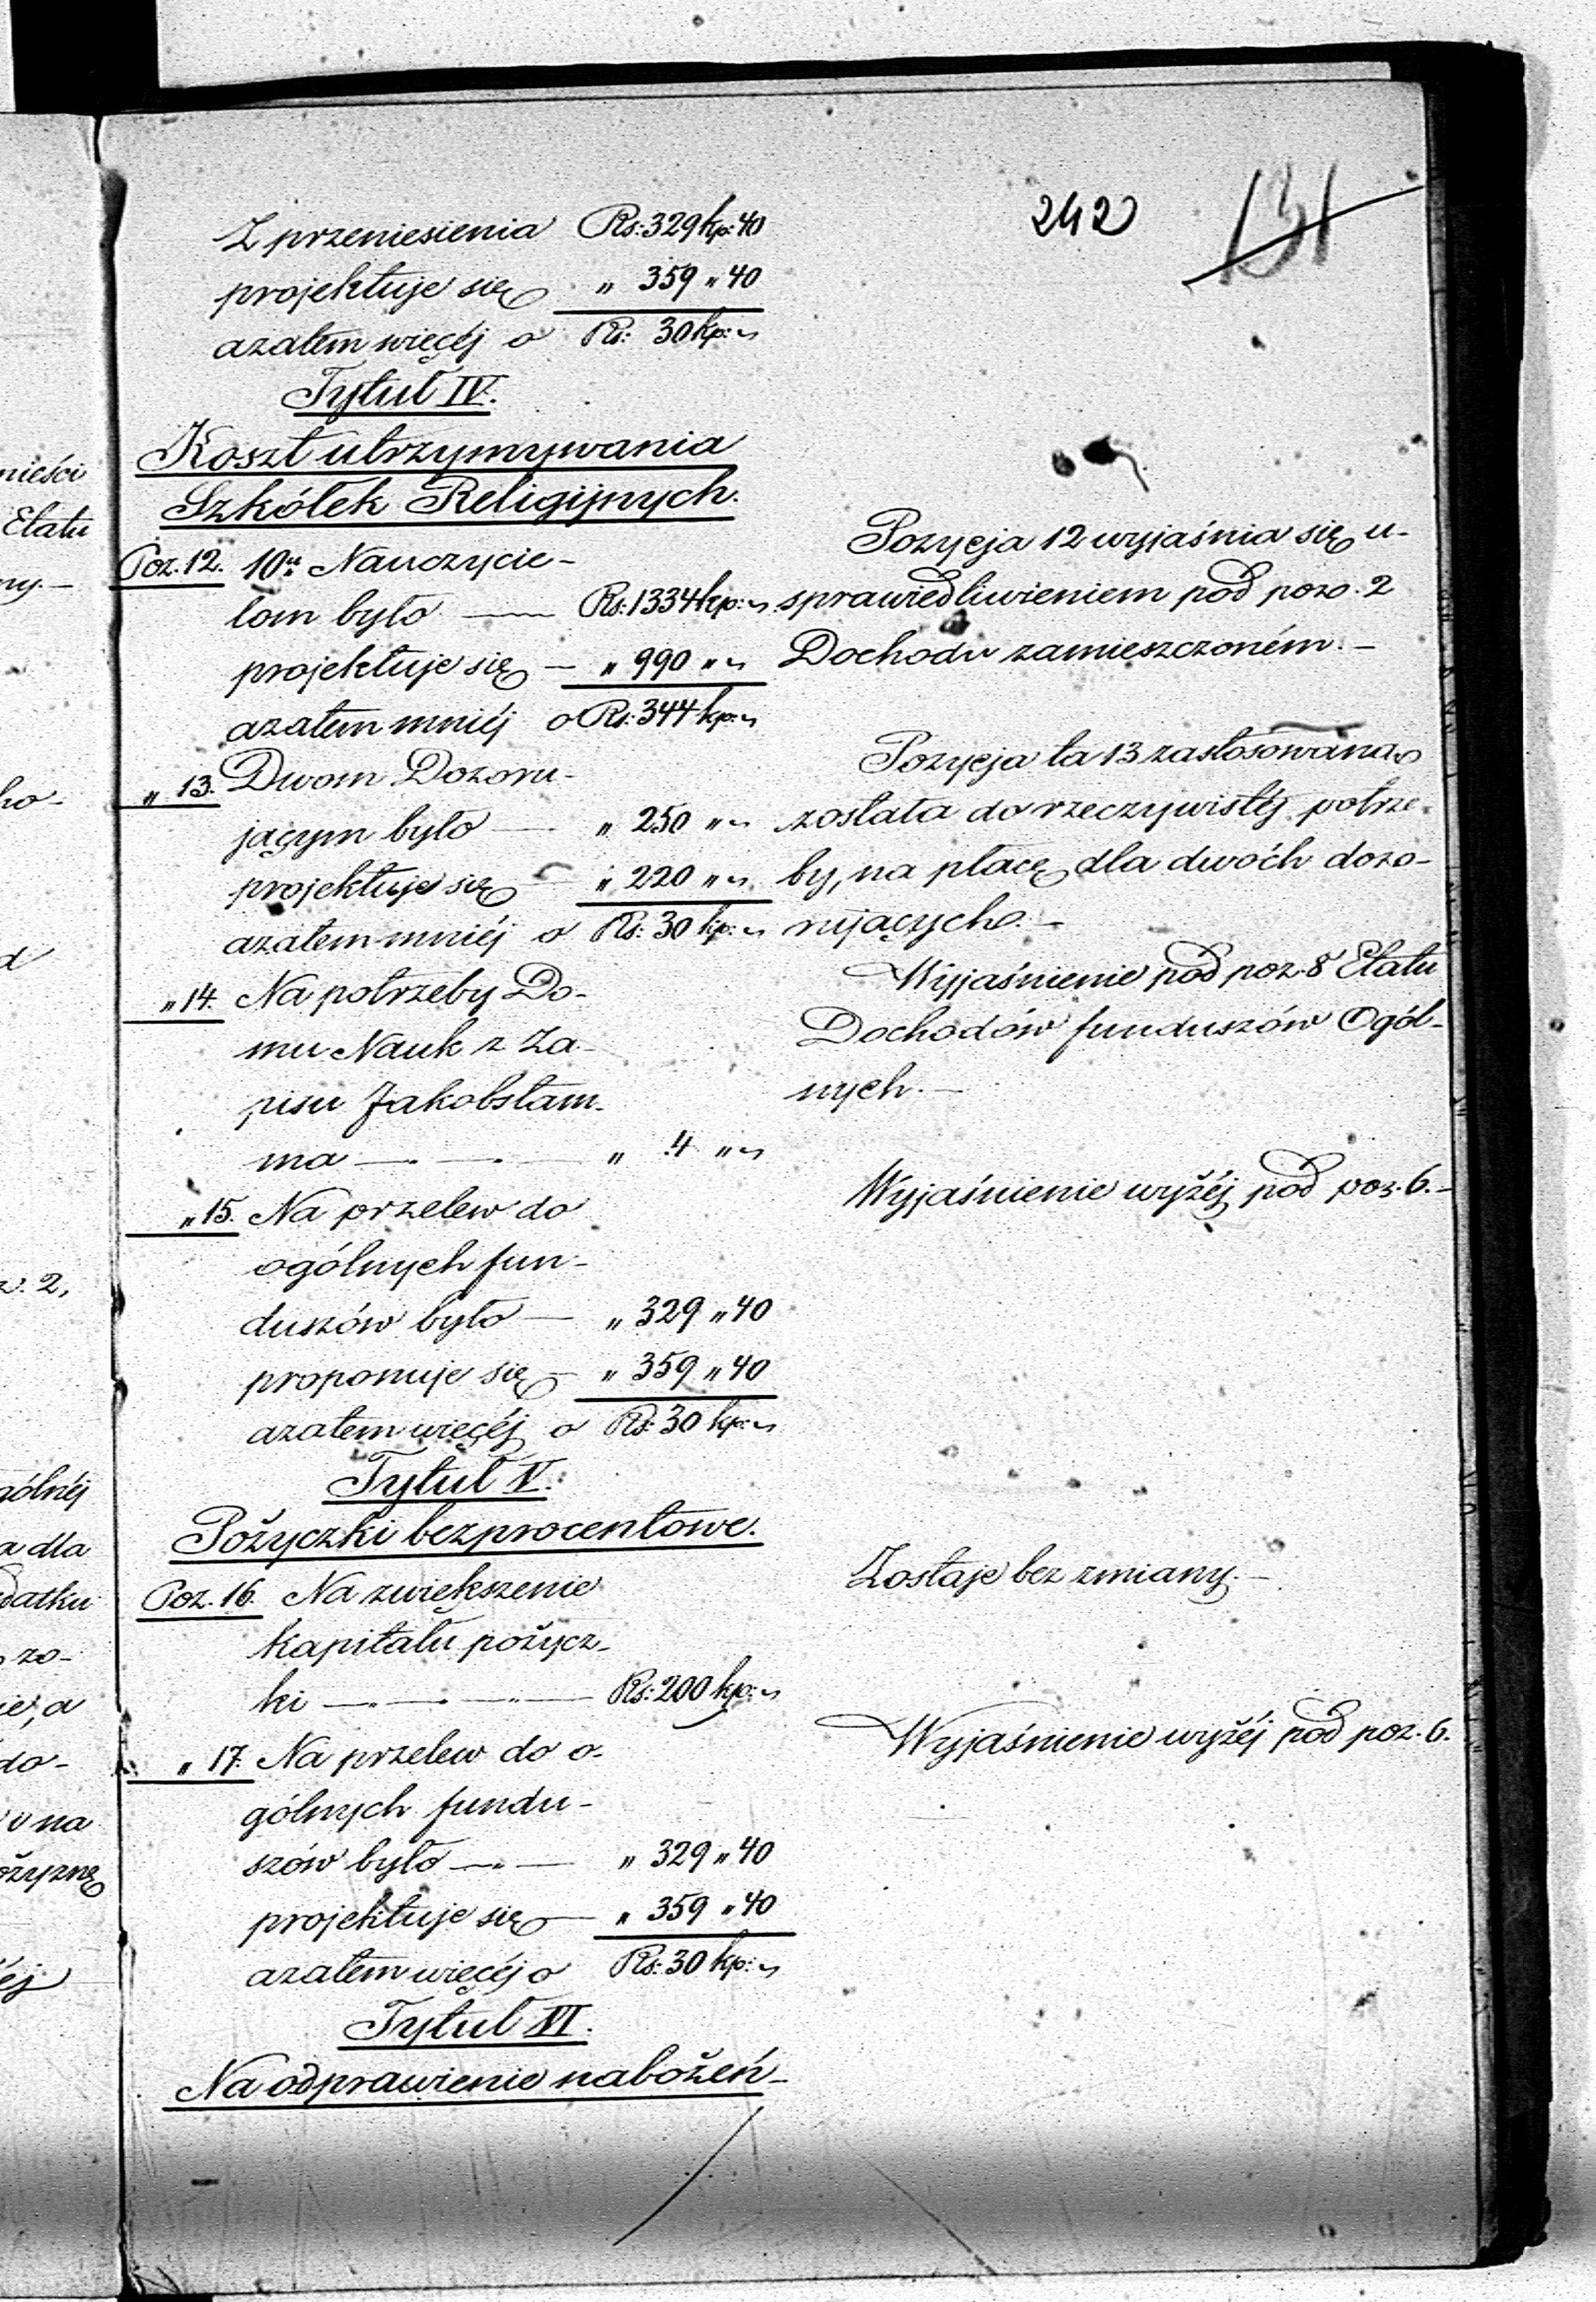 242
131
Z przeniesienia Rs: 329 kp: 40
projektuje się „ 359 „ 40
azatem więcéj o Rs: 30 kp: „
Tytuł IV.
Koszt utrzymywania
Szkółek Religijnych.
Poz. 12. 10u Nauczycie-
lom było — Rs: 1334 kp: „
projektuje się — „ 990 „ „
azatem mniéj o Rs: 344 kp: „
Pozycja 12 wyjaśnia się u-
sprawiedliwieniem pod pozo. 2
Dochodu zamieszczoném. —
„ 13. Dwom Dozoru-
jącym było — „ 250 „ „
projektuje się — „ 220 „ „
azatem mniéj o Rs: 30 kp: „
Pozycja ta 13 zastosowana
została do rzeczywistéj potrze-
by, na płacę dla dwóch dozo-
rujących. —
„ 14. Na potrzeby Do-
mu Nauk z Za-
pisu Jakobstam-
ma — — — „ 4 „ „
Wyjaśnienie pod poz. 8 Etatu
Dochodów funduszów Ogól-
nych. —
„ 15. Na przelew do
ogólnych fun-
duszów było — „ 329 „ 40
proponuje się — „ 359 „ 40
azatem więcéj o Rs: 30 kp: „
Wyjaśnienie wyżéj pod poz. 6. —
Tytuł V.
Pożyczki bezprocentowe.
Poz. 16. Na zwiększenie
kapitału pożycz-
ki — — — Rs: 200 kp: „
Zostaje bez zmiany. —
„ 17. Na przelew do o-
gólnych fundu-
szów było — — „ 329 „ 40
projektuje się — „ 359 „ 40
azatem więcéj o Rs: 30 kp: „
Wyjaśnienie wyżéj pod poz. 6.
Tytuł VI.
Na odprawienie nabożeń-
nieści
Etatu
ny. —
ho-
d
z. 2,
gólnéj
a dla
datku
zo-
ie, a
do-
u na
ożyznę
éj